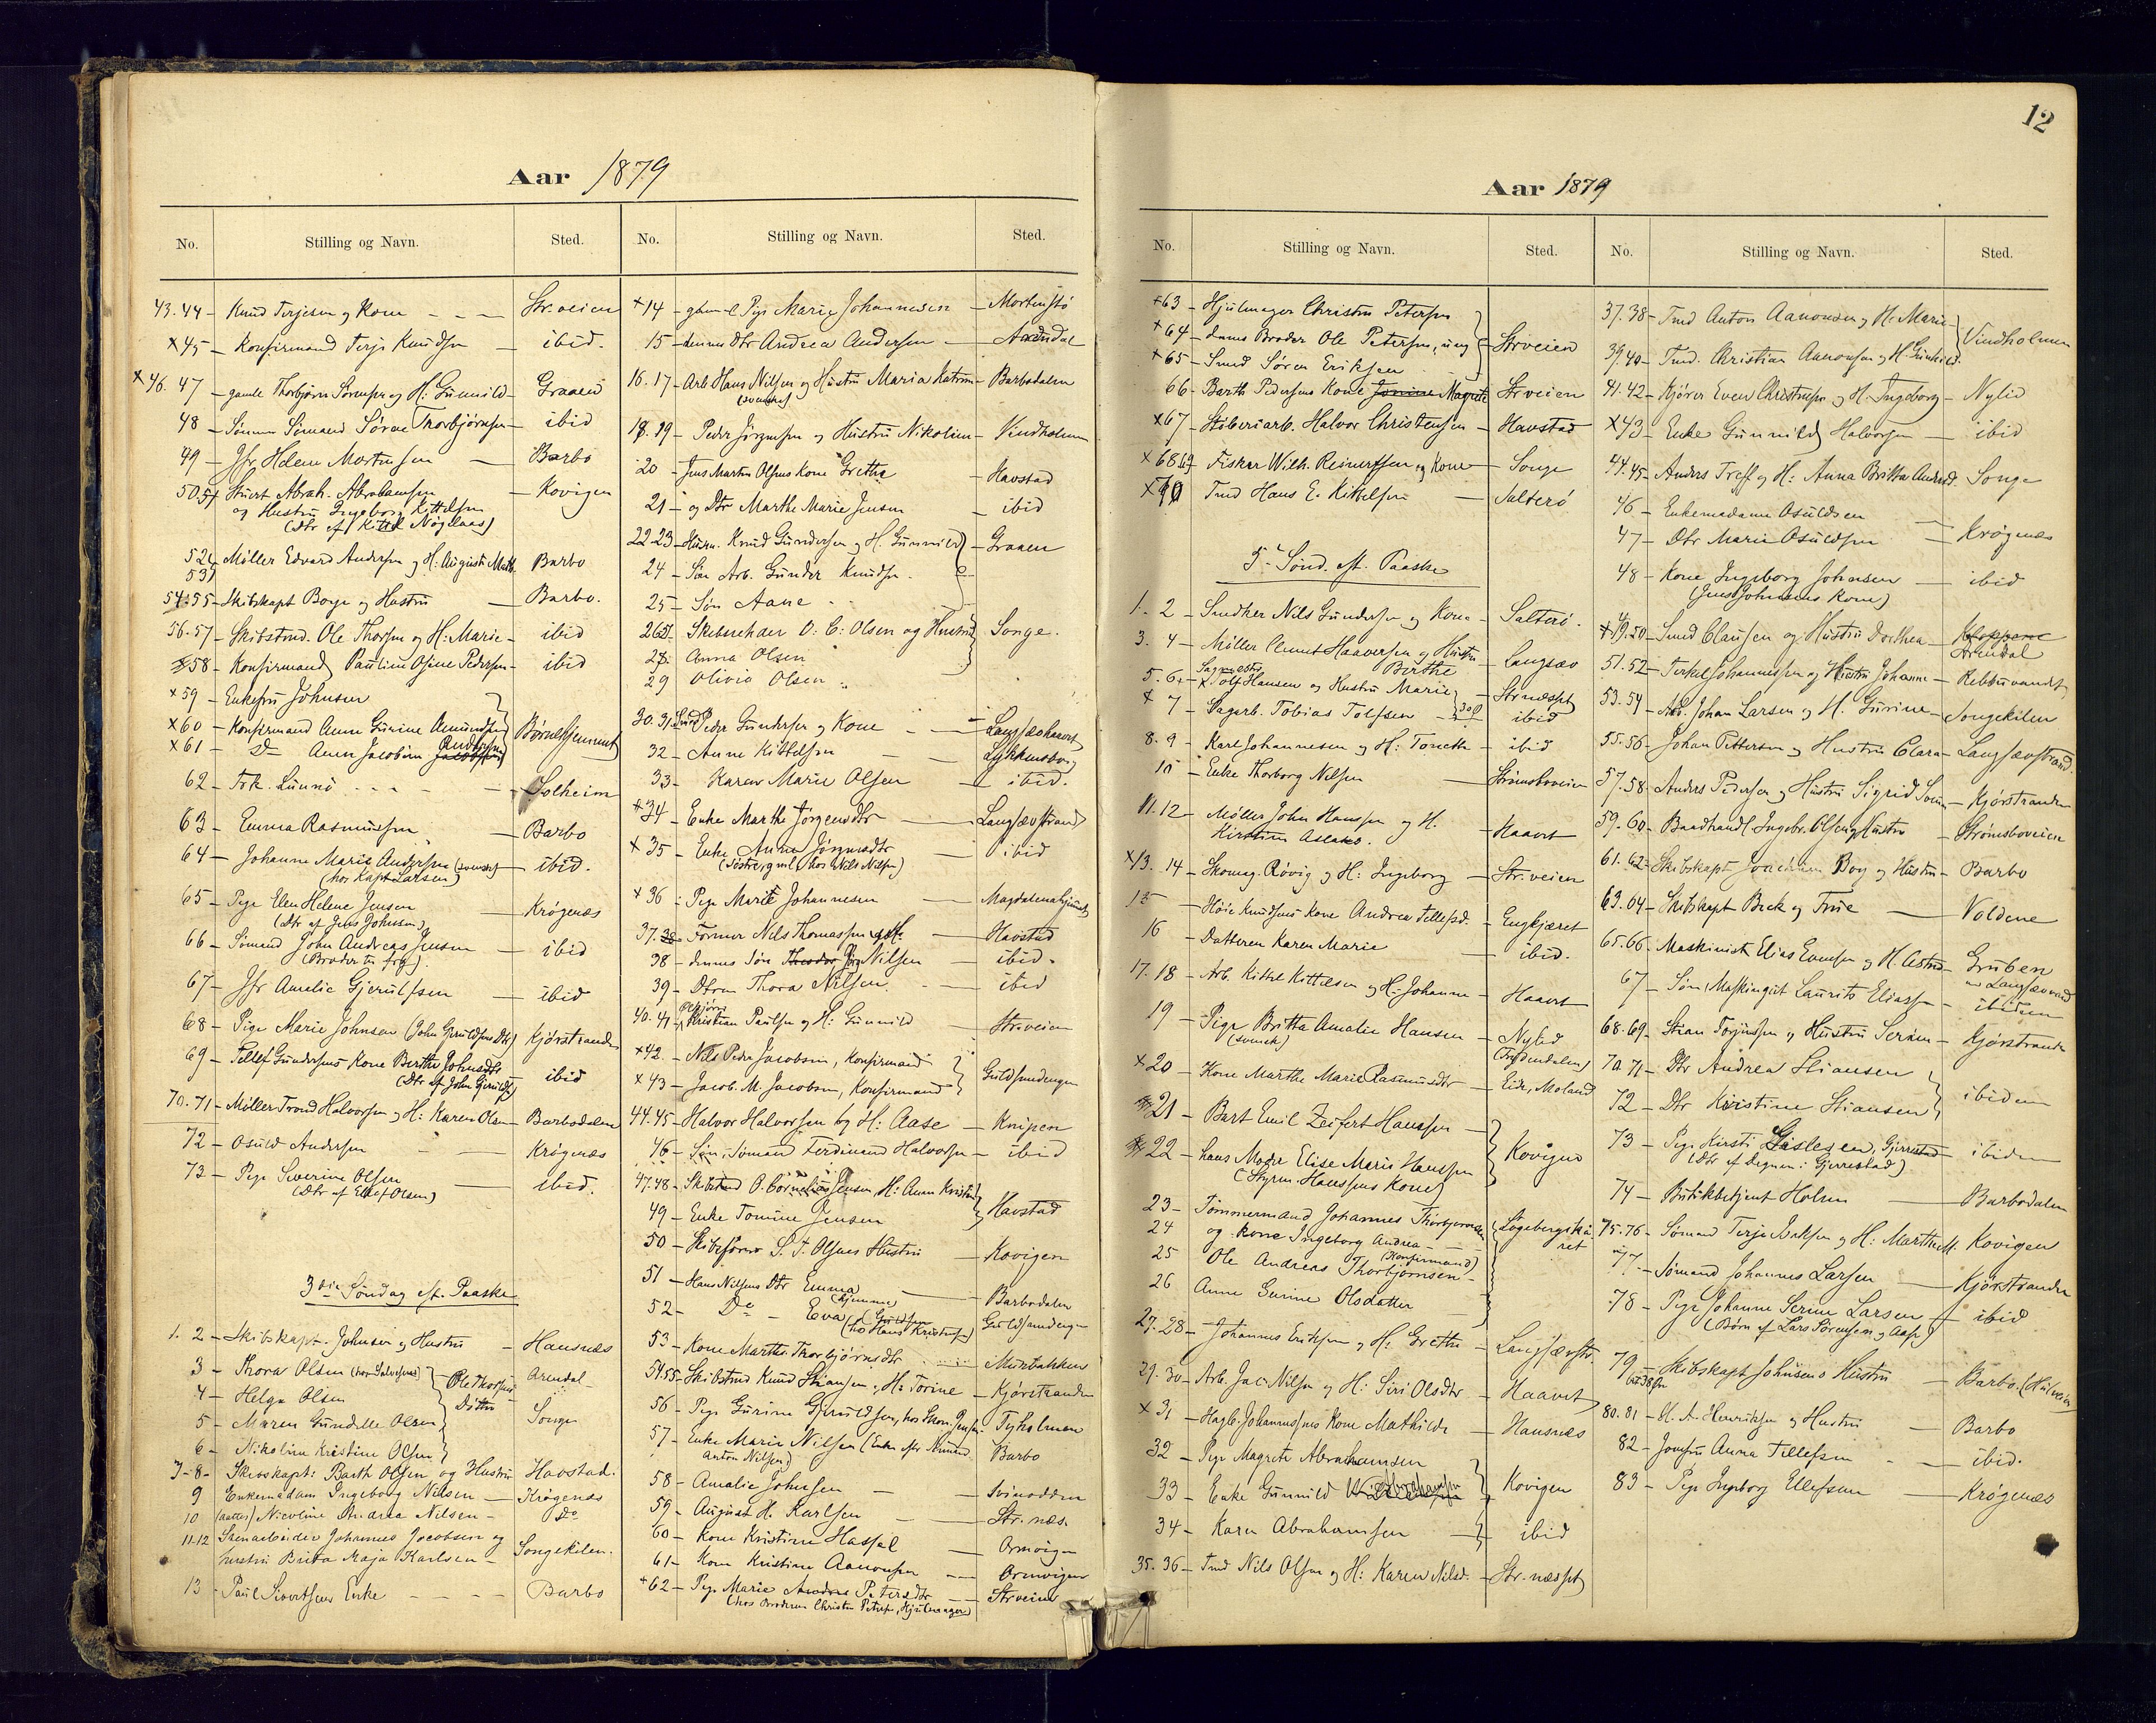 Aar 1879
No. Stilling og Navn. Sted.
43.44 - Knud Terjesen og Kone - Str.veien
x45 - Konfirmand Terje Knudsen - ibid.
x46.47 - gamle Thorbjørn Sørensen og H: Gunnild - Graaen
48 - Sømand Søren Thorbjørnsen - ibid
49 - Jfr Helene Mortensen - Barbo
50.51 Stuert Abrah. Abrahamsen - Kovigen
og Hustru Ingeborg Kittelsen
(Dtr af Kittel Nøgelaas)
52 53 Møller Edvard Andersen og H: Augusta Math. Barbo
54.55 - Skibskapt Boye og Hustru - Barbo.
56.57 - Skibstmd. Ole Thorsen og H: Marie - ibid
x58 - Konfirmand Pauline Osine Pedersen - ibid
x59 - Enkefru Johnsen
x60 - Konfirmand Anne Gurine Amundsen Børnehjemmet
x61 - Do Anna Jacobine Andersen
62 - Frk. Lunnø - Solheim
63 - Emma Rasmussen - Barbo
64 - Johanne Marie Andersen (svensk) - ibid.
(hos Kapt Larsen)
65 - Pige Elen Helene Jensen - Krøgenæs
(Dtr af Jens Johnsen)
66 - Sømand John Andreas Jensen - ibid
(Broder til frg.)
67 - Jfr Amalie Gjerulfsen - ibid
68 - Pige Marie Johnsen (John Gjeruldsens Dtr) Kjørstranden
69 - Tellef Gundersens Kone Berthe Johnsdtr - ibid
(Dtr af John Gjerulds.)
70.71 - Møller Trond Halvorsen og H: Karen Olsen - Barbodalen
72 - Osuld Andersen - Krøgenæs
73 - Pige Severine Olsen - ibid.
(Dtr af Ellef Olsen)
3die Søndag eft. Paaske
1. 2 - Skibskapt. Johnsen og Hustru - Hausnæs
3 - Thora Olsen Arendal
4 - Helga Olsen Døttre
5 - Maren Gundelle Olsen Songe
6 - Nikoline Kristine Olsen
7-8 - Skibskapt: Barth Olsen og Hustru Havstad.
9 Enkemadam Ingeborg Nilsen - Krøgenæs
10 (datter) Nicoline Andrea Nilsen - Do
11-12 Stenarbeider Johannes Jacobsen og
hustru Brita Maja Karlsen - Songekilen.
13 - Paul Sivertsens Enke - Barbo
No. Stilling og Navn. Sted.
x14 - gammel Pige Marie Johannesen - Mortenstø
15 - dennes Dtr Andrea Andersen - Arendal
16.17 - Arb. Hans Nilsen og Hustru Maria Katrine - Barbodalen
(svenske)
18.19 - Peder Jørgensen og Hustru Nikoline - Vindholmen
20 - Jens Martin Olsens Kone Grethe - Havstad
21 - og Dtr Marthe Marie Jensen - ibid
22-23 - Husm. Knud Gundersen og H. Gunnild - Graaen
24 - Søn Arb. Gunder Knudsen
25 - Søn Aane
26.27 Skibsreder O: C: Olsen og Hustru Songe.
28. Anna Olsen
29 Olivia Olsen
30.31 Smd Peder Gundersen og Kone - Langsæhaavet
32 - Anne Kittelsen - Lykkensborg
33 - Karen Marie Olsen - ibid.
x34 - Enke Marthe Jørgensdtr - Langsævstrand
x35 - Enke Anne Jørgensdtr - ibid
(Søstre, gml. hos Nils Nilsen)
x36 - Pige Marie Johannesen - Magdalenahjemmet
37. Former Nils Thomassen - Havstad
38 - dennes Søn Jørg Nilsen - ibid.
39 - Dtren Thora Nilsen - ibid
40.41 - Kristian Paulsen og H: Gunnild - Str.veien
x42 - Nils Peder Jacobsen, Konfirmand
x43 - Jacob M. Jacobsen, Konfirmand Guldsmedengen
44.45 - Halvor Halvorsen og H: Aase - Knipen
46 - Søn, Sømand Ferdinand Halvorsen - ibid
47.48 - Skibstmd O. Cornelius Jensen, H: Anne Kristine
49 - Enke Tomine Jensen Havstad
50 - Skibsfører S. T. Olsens Hustru - Kovigen
51 - Hans Nilsens Dtr Emma - Barbodalen
(hjemme)
52 - Do - Eva Guldsmedengen
53 - Kone Marthe Thorbjørnsdtr - Murbakken
54.55 - Skibstmd Knud Stiansen, H: Torine - Kjørstranden
56 - Pige Gurine Gjeruldsen, hos Skom. Jensen - Tyholmen
57 - Enke Marie Nilsen (Enke efter Sømand Barbo
Anton Nilsen)
58 - Amalie Johnsen - Svinodden
59 - August H. Karlsen - Str. næs.
60 - Kone Kristine Hassel - Ormvigen
61 - Kone Kristine Aanonsen - Ormvigen
x62 - Pige Marie Andrea Petersdtr - Strveien
(hos Broderen Christen Petersen, Hjulmager)
12
Aar 1879
No. Stilling og Navn. Sted.
x63 - Hjulmager Christen Petersen
x64 - dennes Broder Ole Petersen, ung - Strveien
x65 - Smed Søren Eriksen
66 - Barth Pedersens Kone Jonine Magrete Strveien
x67 - Støberiarb. Halvor Christensen - Havstad
x68.69 - Fisker Wilh. Reinertsen og Kone - Songe
x70 Tmd Hans E. Kittelsen - Salterø
5te Sønd. eft. Paaske
1. 2 - Snedker Nils Gundersen og Kone - Salterø.
3. 4 - Møller Clemet Haaversen og Hustru - Langsæv
Berthe
5. 6 - Sagmester Tolf Hansen og Hustru Marie - Strnæsset
x7 - Sagarb. Tobias Tolfsen - ibid
8. 9 - Karl Johannesen og H: Tonette - ibid
10 - Enke Thorborg Nilsen - Strømsboveien
11.12 - Møller John Hansen og H. Haavet
Kirstine Aslaks.
x13. 14 - Skomag. Røvig og H: Ingeborg - Str.veien
15 - Høie Knudsens Kone Andrea Tellefsd. - Engkjæret
16 - Datteren Karen Marie - ibid.
17. 18 - Arb. Kittel Kittelsen og H: Johanne - Haavet
19 - Pige Britta Amalie Hansen - Nylid
(svensk) (Frydendalen)
x20 - Kone Marthe Marie Rasmusdtr - Eide, Moland
21 - Bart Emil Zeifert Hanssen
22 - hans Moder Elise Marie Hanssen Kovigen
(Styrm. Hanssens Kone)
23 - Tømmermand Johannes Thorbjørnsen Løgebergskjæret
24 og kone Ingeborg Andrea -
(Konfirmand)
25 Ole Andreas Thorbjørnsen -
26 Anne Gurine Olsdatter
27. 28 - Johannes Eriksen og H: Grethe - Langsævstr.
29. 30 - Arb. Jac. Nilsen og H: Siri Olsdtr - Haavet
x31 - Hagb. Johannesens Kone Mathilde - Hausnæs
32 - Pige Magrete Abrahamsen
33 - Enke Gunnild Abrahamsen Kovigen
34 - Karen Abrahamsen - ibid
35. 36 - Tmd Nils Olsen og H: Karen Nilsd. - Str.næsset
No. Stilling og Navn. Sted.
37.38 - Tmd Anton Aanonsen og H: Marie - Vindholmen
39.40 - Tmd. Christian Aanonsen og H: Gunhild
41.42 - Kjører Even Christensen og H. Ingeborg - Nylid
x43 - Enke Gunnild Halvorsen - ibid
44.45 - Anders Treff og H: Anna Britta Andersd. Songe
46 - Enkemadame Osuldsen
47 - Dtr Marie Osuldsen - Krøgenæs
48 - Kone Ingeborg Johnsen - ibid
(Jens Johnsens Kone)
x49.50 - Smed Clausen og Hustru Dorthea - Kloppene
Arendal
51.52 - Terkel Johannessen og Hustru Johanne - Rebbuvandet
53.54 - Arb. Johan Larsen og H. Gurine - Songekilen
55.56 - Johan Pettersen og Hustru Clara - Langsævstrand.
57.58 - Anders Pedersen og Hustru Sigrid - Kjørstranden
59.60 - Baadhandl. Ingebr. Olsen og Hustru - Strømsboveien
61.62 - Skibskapt Joachim Boy og Hustru - Barbo
63.64 - Skibskapt Beck og Frue - Voldene
65.66 - Maskinist Elias Evensen og H. Astrid - Gruben
ved Langsævvand
67 - Søn, Maskingut Laurits Eliassen - ibidem
68.69 - Stian Torjussen og Hustru Serine - Kjørstranden
70.71 - Dtr Andrea Stiansen
72 - Dtr Kristine Stiansen ibidem
73 - Pige Kirsti Gislesen, Gjerrestad - ibidem
(Dtr af Degnen i Gjerrestad)
74 - Butikbetjent Holm - Barbodalen
75.76 - Sømand Terje Isaksen og H: Marthe M. Kovigen
77 - Sømand Johannes Larsen - Kjørstranden
78 - Pige Johanne Serine Larsen - ibid
(Børn af Lars Sørensen og Aase)
79 - Skibskapt Johnsens Hustru - Barbo.
80.81 - H. A. Henriksen og Hustru - Barbo
82 - Jomfru Anna Tellefsen - ibid.
83 - Pige Ingeborg Ellefsen - Krøgenæs